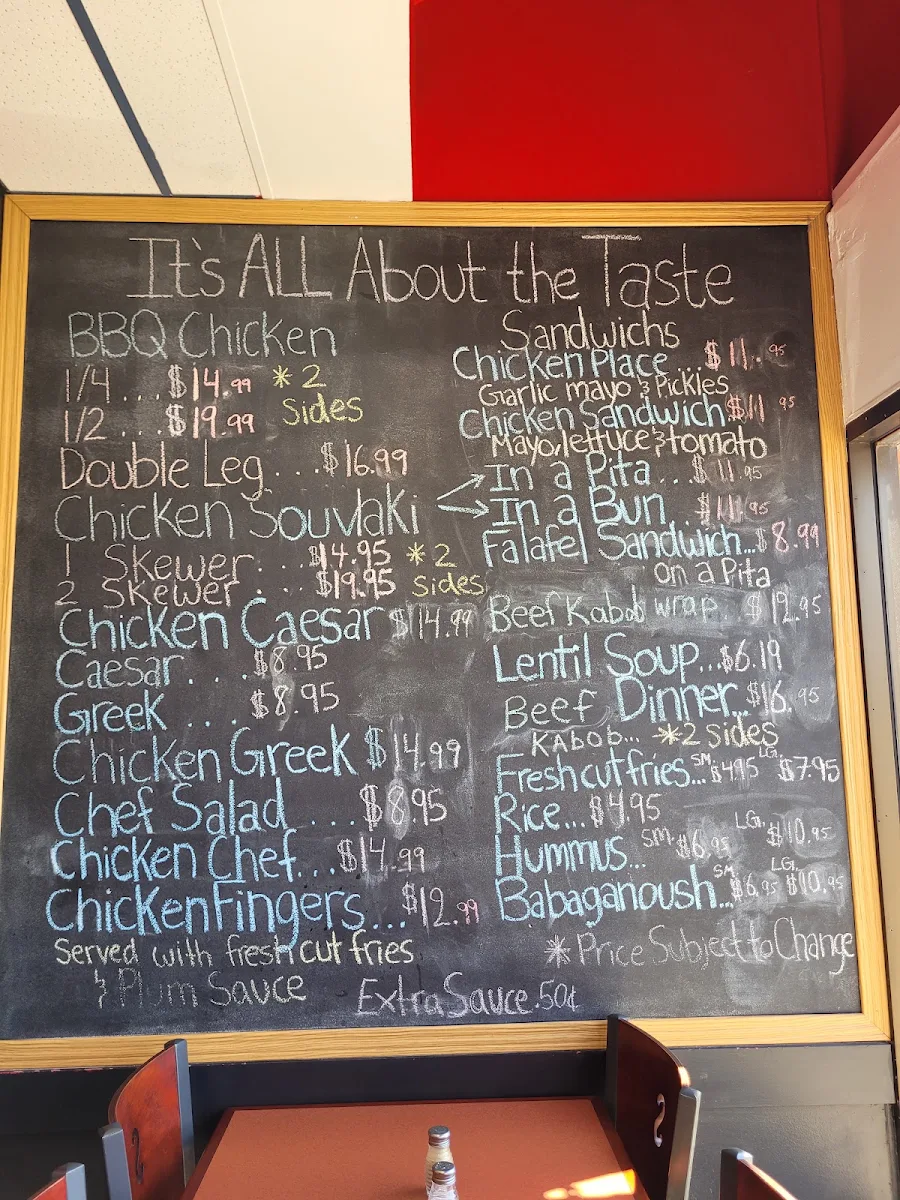 It's ALL About the Taste
BBQ Chicken
1/4 ... $14.99 * 2
1/2 ... $19.99 Sides
Double Leg ... $16.99
Chicken Souvlaki
1 Skewer ... $14.95 * 2
2 Skewer ... $19.95 sides
Chicken Caesar $14.99
Caesar ... $8.95
Greek ... $8.95
Chicken Greek $14.99
Chef Salad ... $8.95
Chicken Chef... $14.99
Chicken Fingers... $12.99
Served with fresh cut fries
& Plum Sauce
Extra Sauce 50¢
Sandwichs
Chicken Place ... $11.95
Garlic mayo & Pickles
Chicken Sandwich $11.95
Mayo, lettuce & tomato
In a Pita ... $11.95
In a Bun $11.95
Falafel Sandwich... $8.99
on a Pita
Beef Kabob wrap. $12.95
Lentil Soup... $6.19
Beef Dinner... $16.95
KABOB... *2 sides
Fresh cut fries... SM. $4.95 LG. $7.95
Rice... $4.95
Hummus... SM. $6.95 LG. $10.95
Babaganoush... SM. $6.95 LG. $10.95
* Price Subject to Change